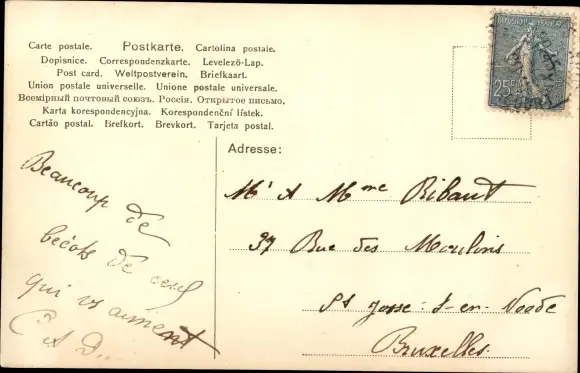 Carte postale. Postkarte. Cartolina postale.
Dopisnice. Correspondenzkarte. Levelezö-Lap.
Post card. Weltpostverein. Briefkaart.
Union postale universelle. Unione postale universale.
Всемірный почтовый союзъ. Россія. Открытое письмо.
Karta korespondencyjna. Korespondenční lístek.
Cartão postal. Brefkort. Brevkort. Tarjeta postal.
25c
Adresse:
Beaucoup de
bécots de ceux
qui vs aiment
Mr & Mme Ribaut
37 Rue des Moulins
St Josse-t-en-Noode
Bruxelles.